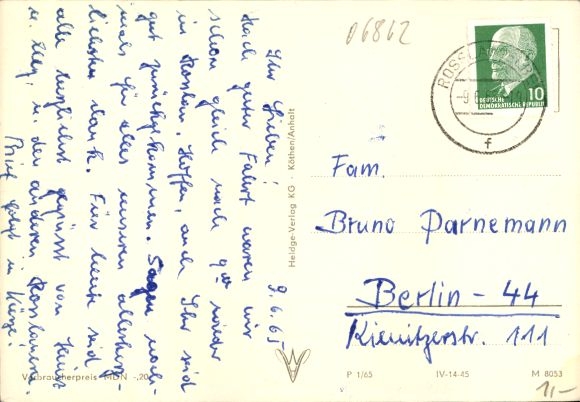 9.6.65
Ihr Lieben!
Nach guter Fahrt waren wir
schon gleich nach 9 wieder
in Rosslau. Hoffen, auch Ihr seid
gut zurückgekommen. Sagen noch-
mals für alles unseren allerherz-
lichsten Dank. Für heute seid
alle herzlichst gegrüsst von Heinz
u. Elly, u. den anderen Rosslauern.
Brief folgt in Kürze!
Heldge-Verlag KG · Köthen/Anhalt
Verbraucherpreis MDN -,20
06862
ROSSLAU
f
10
DEUTSCHE
DEMOKRATISCHE REPUBLIK
Fam.
Bruno Parnemann
Berlin - 44
Kienitzerstr. 111
P 1/65 IV-14-45 M 8053
1,-